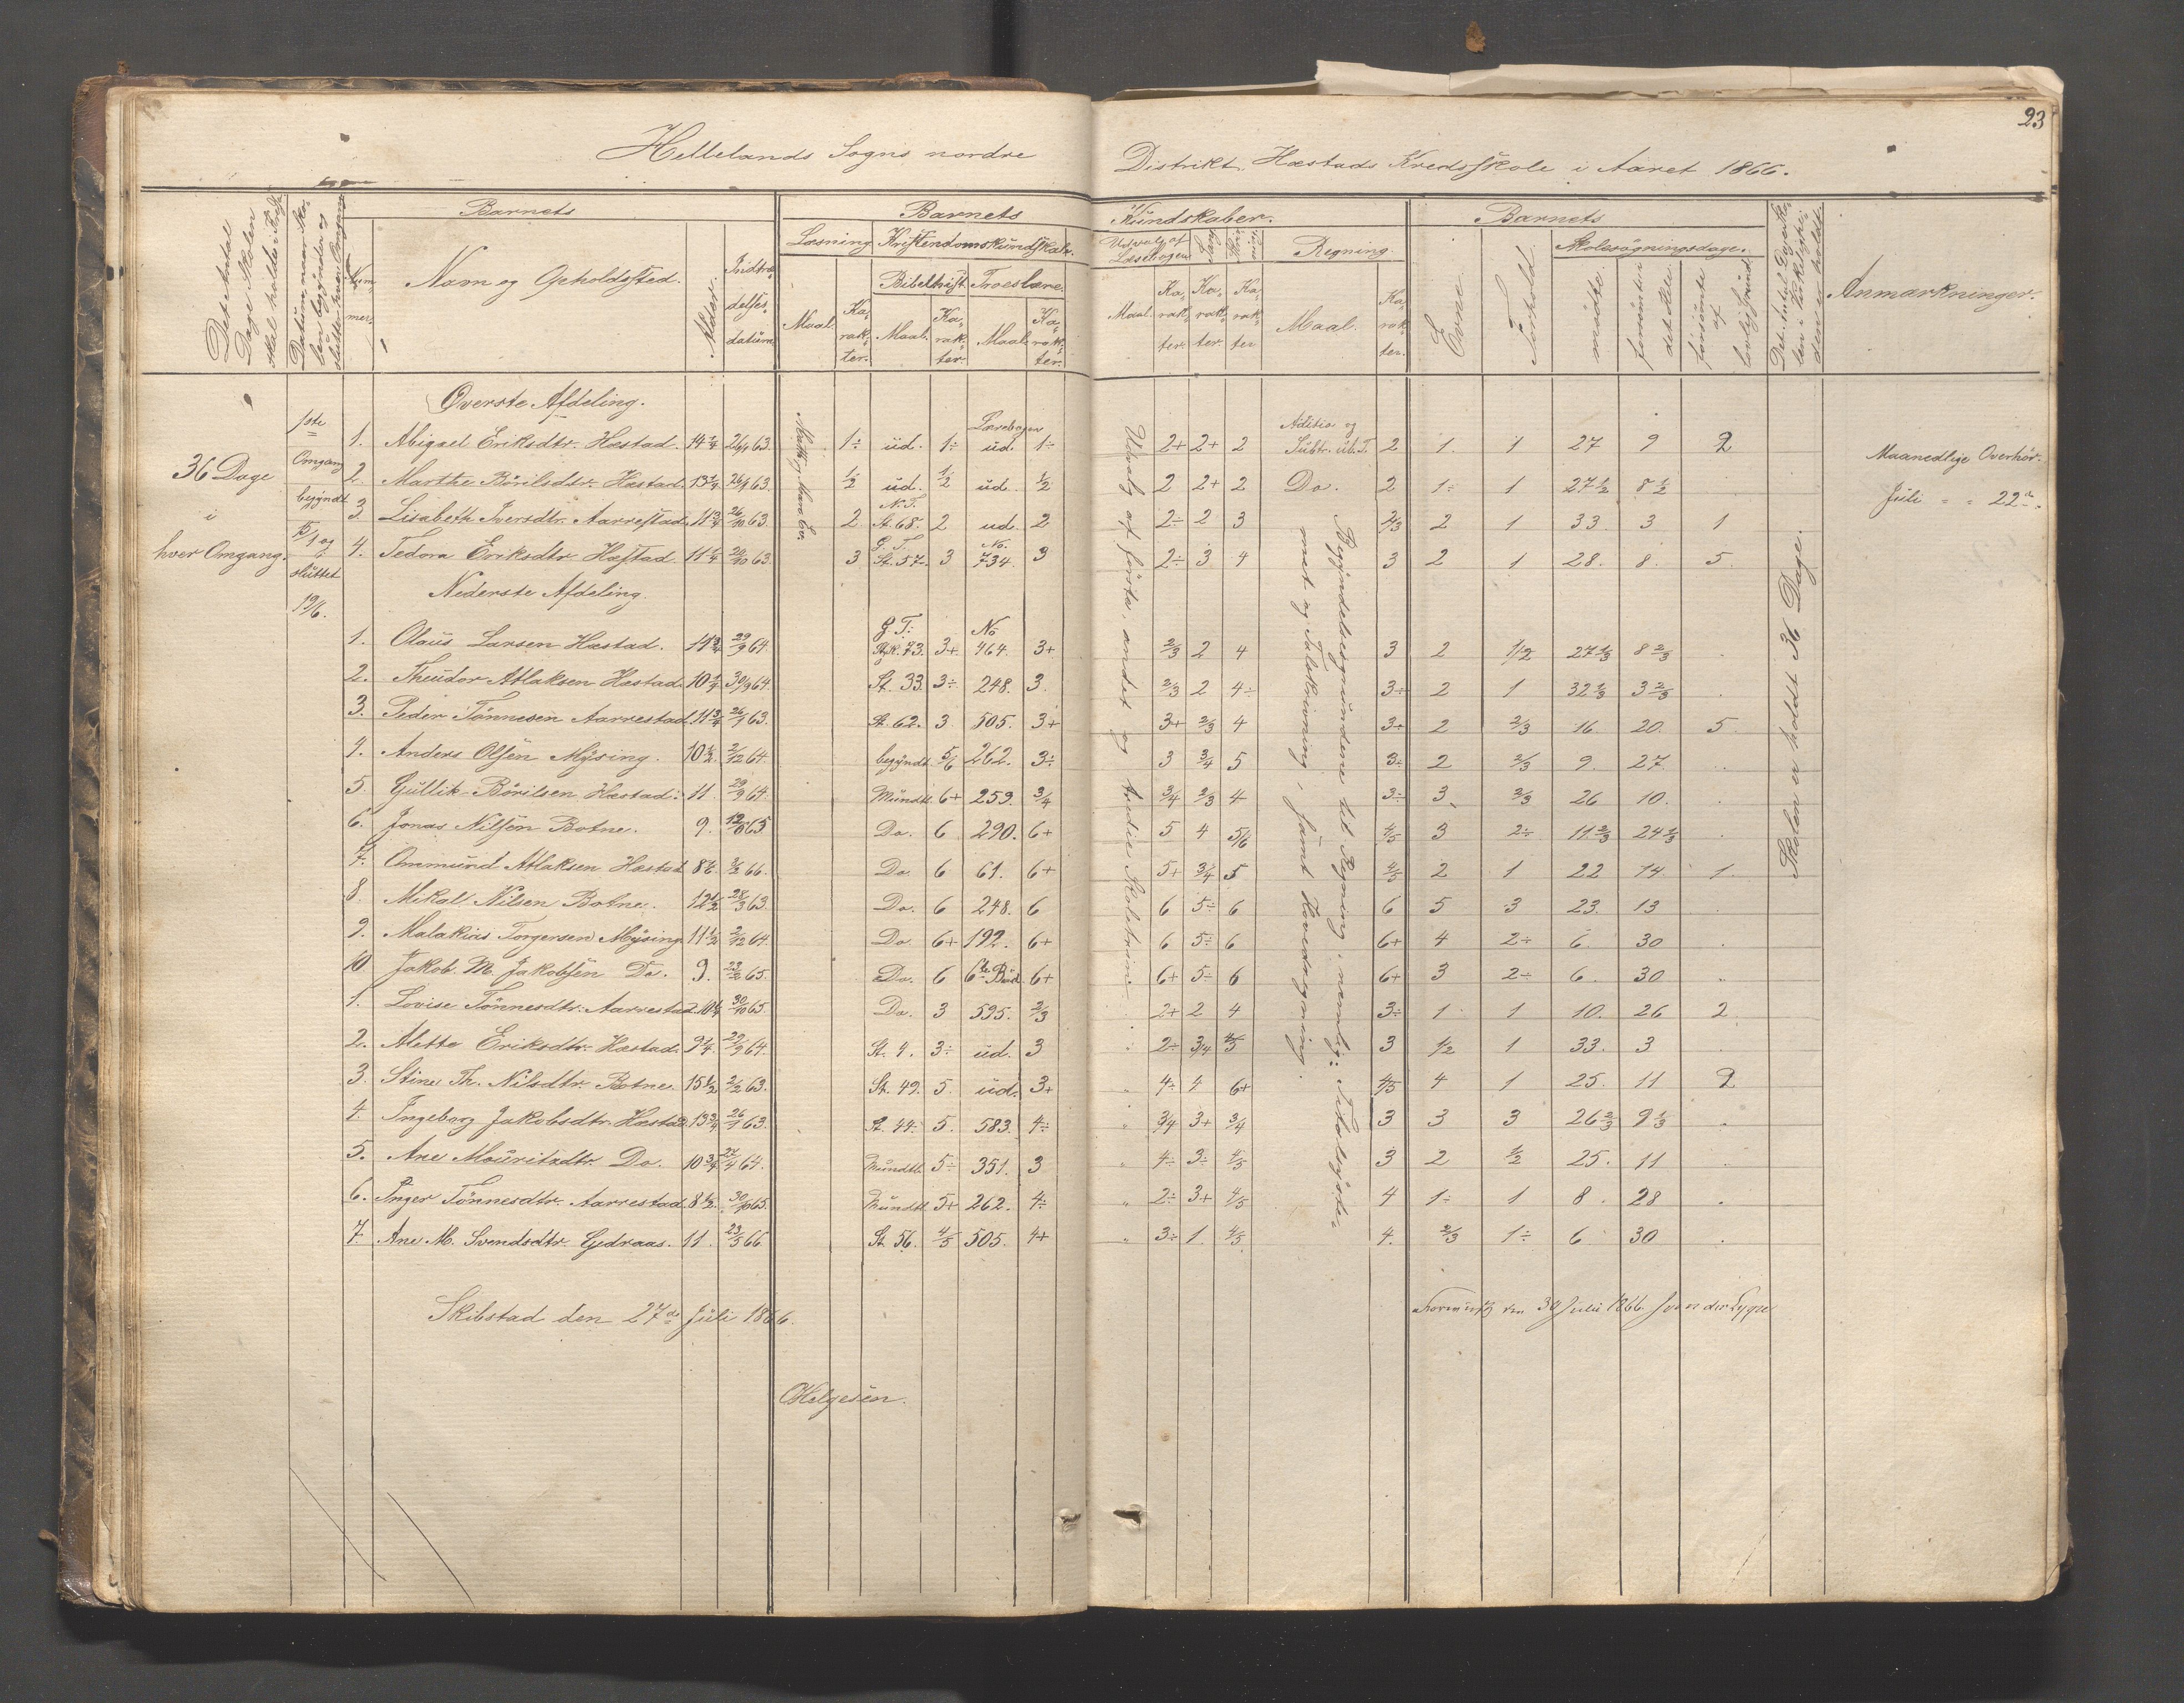 23
Hellelands Sogns nordre Distrikt. Hæstads Kredsskole i Aaret 1866.
Det Antal Dage Skolen skal holdes i Kredsen
Datum, naar Skolen begynder og slutter hver Omgang
Barnets
Nummer.
Navn og Opholdssted.
Alder.
Indtrædelsesdatum
Barnets Kundskaber.
Læsning
Kristendomskundskab.
Bibelhist. Troeslære.
Maal. Karakter.
Maal. Karakter.
Maal. Karakter.
Udvalg af Læsebogen
Sang
Skrivning
Regning.
Maal. Karakter. Karakter. Karakter
Maal. Karakter.
Barnets
Evne.
Forhold
Skolesøgningsdage.
mødte.
forsømte i det Hele.
forsømte af lovlig Grund.
Det Antal Dage Skolen i Virkeligheden er holdt
Anmærkninger.
36 Dage
i
hver Omgang.
1ste
Omgang
begyndt
15/1 og
sluttet
19/6.
Øverste Afdeling.
Lærebogen
Aditio og
1. Abigael Eriksdtr. Hæstad. 14 1/4 26/1 63. 1÷ ud. 1÷ ud. 1÷ 2+ 2+ 2 Subtr. ub. T. 2 1. 1 27 9 2
2. Marthe Börilsdtr. Hæstad. 13 1/4 26/1 63. 1/2 ud. 1/2 ud. 1/2 2 2+ 2 Do. 2 1÷ 1 27 1/2 8 1/2
N. T.
3. Lisabeth Iversdtr. Aarrestad. 11 3/4 26/10 63. 2 St. 68. 2 ud. 2 2÷ 2 3 2/3 2 1 33 3 1
G. T. No.
4. Tedora Eriksdtr. Hæstad. 11 1/4 29/10 63. 3 St. 57. 3 734. 3 2÷ 3 4 3 2 1 28. 8. 5.
Nederste Afdeling.
G. T: No
1. Olaus Larsen Hæstad. 11 3/4 29/9 64. Styk. 73. 3+ 464. 3+ 2/3 2 4 3 2 1/2 27 1/3 8 2/3
2. Theudor Atlaksen Hæstad. 10 1/4 30/9 64. St. 33. 3÷ 248. 3. 2/3 2 4÷ 3÷ 2 1 32 1/3 3 2/3
3. Peder Tönnesen Aarrestad. 11 3/4 26/1 63. St. 62. 3. 505. 3+ 3+ 2/3 4 3+ 2 2/3 16 20. 5
4. Anders Olsen Mysing. 10 1/2 2/12 64. begyndt. 5/6 262. 3÷ 3 3/4 5 3÷ 2 2/3 9. 27.
5. Gullik Börilsen Hæstad. 11. 29/9 64. Mundtl. 6+ 259. 3/4 3/4 2/3 4 3÷ 3. 2/3 26 10.
6. Jonas Nilsen Botne. 9. 12/6 65 Do. 6 290. 6+ 5 4 5/6 4/5 3 2÷ 11 2/3 24 1/3
7. Ommund Atlaksen Hæstad 8 1/2. 2/2 66. Do. 6 61. 6+ 5+ 3/4 5 4/5 2 1 22 14 1.
8. Mikal Nilsen Botne. 12 1/2 28/3 63. Do. 6 248. 6 6 5÷ 6 6 5 3 23. 13
9. Malakias Torgersen Mysing. 11 1/2 2/12 64. Do. 6+ 192. 6+ 6 5÷ 6 6+ 4 2÷ 6. 30
10 Jakob. M. Jakobsen Do. 9. 23/2 65. Do. 6 6te Bud. 6+ 6+ 5÷ 6 6+ 3 2÷ 6. 30
1. Lovise Tönnesdtr. Aarrestad. 10 1/4 30/10 65. Do. 3 595. 2/3 2+ 2 4 3÷ 1 1 10. 26 2.
2. Alette Eriksdtr. Hæstad. 9 1/4. 29/9 64. St. 4. 3÷ ud. 3 2÷ 3/4 4/5 3 1/2 1 33. 3
3. Stine Th. Nilsdtr. Botne. 15 1/2 2/2 63. St. 49. 5. ud. 3+ 4÷ 4 6+ 4/5 4 1 25. 11 2
4. Ingeborg Jakobsdtr. Hæstad. 13 3/4 26/1 63. St. 44. 5. 583. 4÷ 3/4 3+ 3/4 3 3 3 26 2/3 9 1/3
5. Ane Mouritsdtr. Do. 10 3/4 22/4 64. Mundtl. 5÷ 351. 3 4÷ 3÷ 4/5 3 2 1/2 25. 11
6. Inger Tönnesdtr. Aarrestad. 8 1/2. 30/10 65. Mundtl. 5+ 262. 4÷ 2÷ 3+ 4/5 4 1÷ 1 8. 28
7. Ane M. Svendsdtr. Gjedraas. 11. 23/5 66 St. 56. 4/5 505. 4+ 3÷ 1. 4/5 4. 2/3 1÷ 6 30
Udvalg af første, andet og tredie Skoletrin.
Begyndelsesgrundene til Regning, nemlig: Titalsyste-
met og Talskrivning, samt Hovedregning.
Skolen er holdt 36 Dage.
Maanedlige Overhör.
Juli " " 22de.
Skibstad den 27de Juli 1866.
OHelgesen.
den 30 Juli 1866.